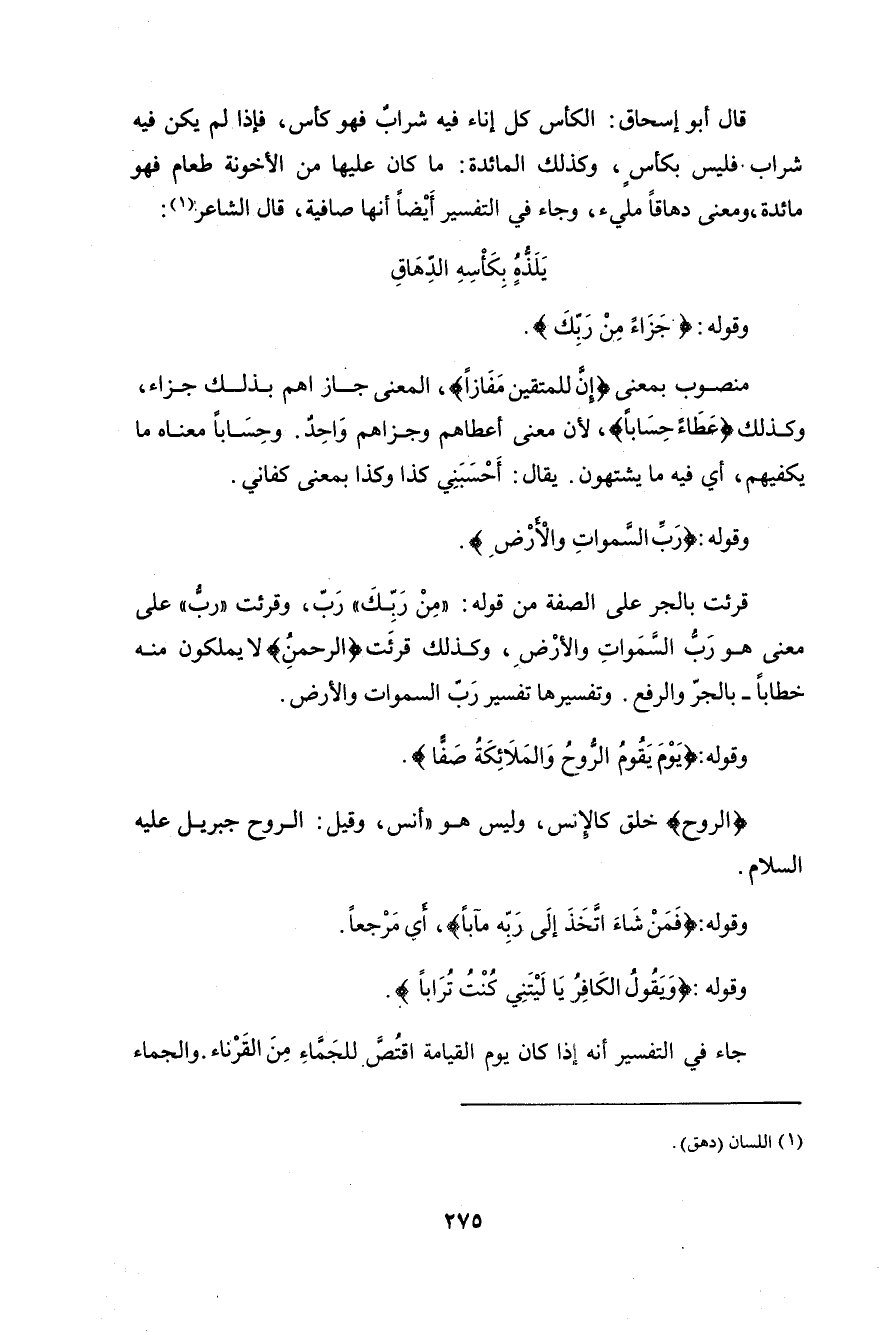 قال أبو إسحاق: الكأس كل إناء فيه شرابٌ فهو كأس، فإذا لم يكن فيه
شراب فليس بكأسٍ، وكذلك المائدة: ما كان عليها من الأخونة طعام فهو
مائدة،ومعنى دهاقاً مليء، وجاء في التفسير أَيْضاً أنها صافية، قال الشاعر(١):
يَلَذُّهُ بِكَأْسِهِ الدِّهَاقِ
وقوله: ﴿جَزَاءً مِنْ رَبِّكَ﴾.
منصوب بمعنى ﴿إِنَّ للمتقين مَفَازاً﴾، المعنى جازاهم بذلك جزاء،
وكذلك ﴿عَطَاءً حِسَاباً﴾، لأن معنى أعطاهم وجزاهم وَاحِدٌ. وحِسَاباً معناه ما
يكفيهم، أي فيه ما يشتهون. يقال: أَحْسَبَنِي كذا وكذا بمعنى كفاني.
وقوله:﴿رَبِّ السَّمواتِ والْأَرْضِ﴾.
قرئت بالجر على الصفة من قوله: «مِنْ رَبِّكَ» رَبّ، وقرئت «ربُّ» على
معنى هو رَبُّ السَّمَواتِ والأرْضِ، وكذلك قرئَت ﴿الرحمنُ﴾ لا يملكون منه
خطاباً ـ بالجرّ والرفع. وتفسيرها تفسير رَبّ السموات والأرض.
وقوله:﴿يَوْمَ يَقُومُ الرُّوحُ وَالمَلَائِكَةُ صَفًّا﴾.
﴿الروح﴾ خلق كالإِنس، وليس هو «أنس، وقيل: الروح جبريل عليه
السلام.
وقوله:﴿فَمَنْ شَاءَ اتَّخَذَ إلَى رَبِّه مآباً﴾، أَي مَرْجعاً.
وقوله :﴿وَيَقُولُ الكَافِرُ يَا لَيْتَنِي كُنْتُ تُرَاباً﴾.
جاء في التفسير أنه إذا كان يوم القيامة اقتُصَّ للجَمَّاءِ مِنَ القَرْناء.والجماء
(١) اللسان (دهق).
٢٧٥